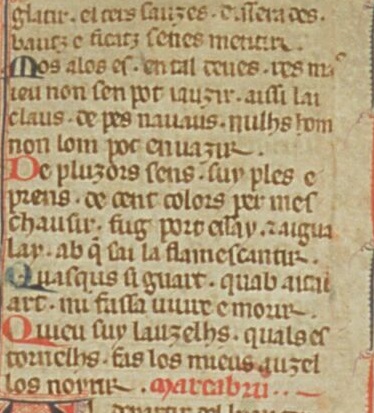 glatir . el ters sauzes . dissera des .
bautz e ficatz senes mentir .
Mos alos es . en tal deues . res mas
ieu non sen pot iauzir . aissi lai
claus . de pes nauaus . nulhs hom
non lom pot enuazir .
De pluzors sens . suy ples e
prens . de cent colors per mes
chausir . fug port essay . z aigua
lay . ab q̃ sai la flamescantir .
Quasqus si guart . quab aital
art . mi fassa uiure e morir .
Quieu suy lauzelhs . quals es
tornelhs . fas los mieus auzel
los noyrir . Marcabru . . .